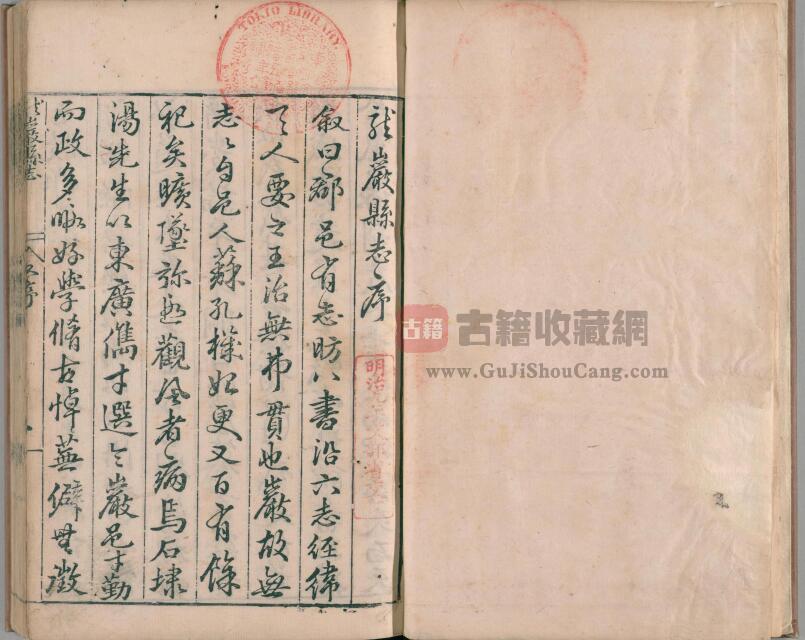 龍巖縣志序
叙曰郡邑有志昉八書沿六志經緯
天人要之王治無弗貫也巖故無
志志自邑人蘇孔機始更又百有餘
祀矣曠墜弥
觀風者病焉石埭
湯先生以東廣儁才選令巖邑才勤
而政多暇好學脩古悼蕪僻無徵
龍巖縣志
序
TOHO LIBRARY
明治
古籍
古籍收藏網
www.GuJiShouCang.com